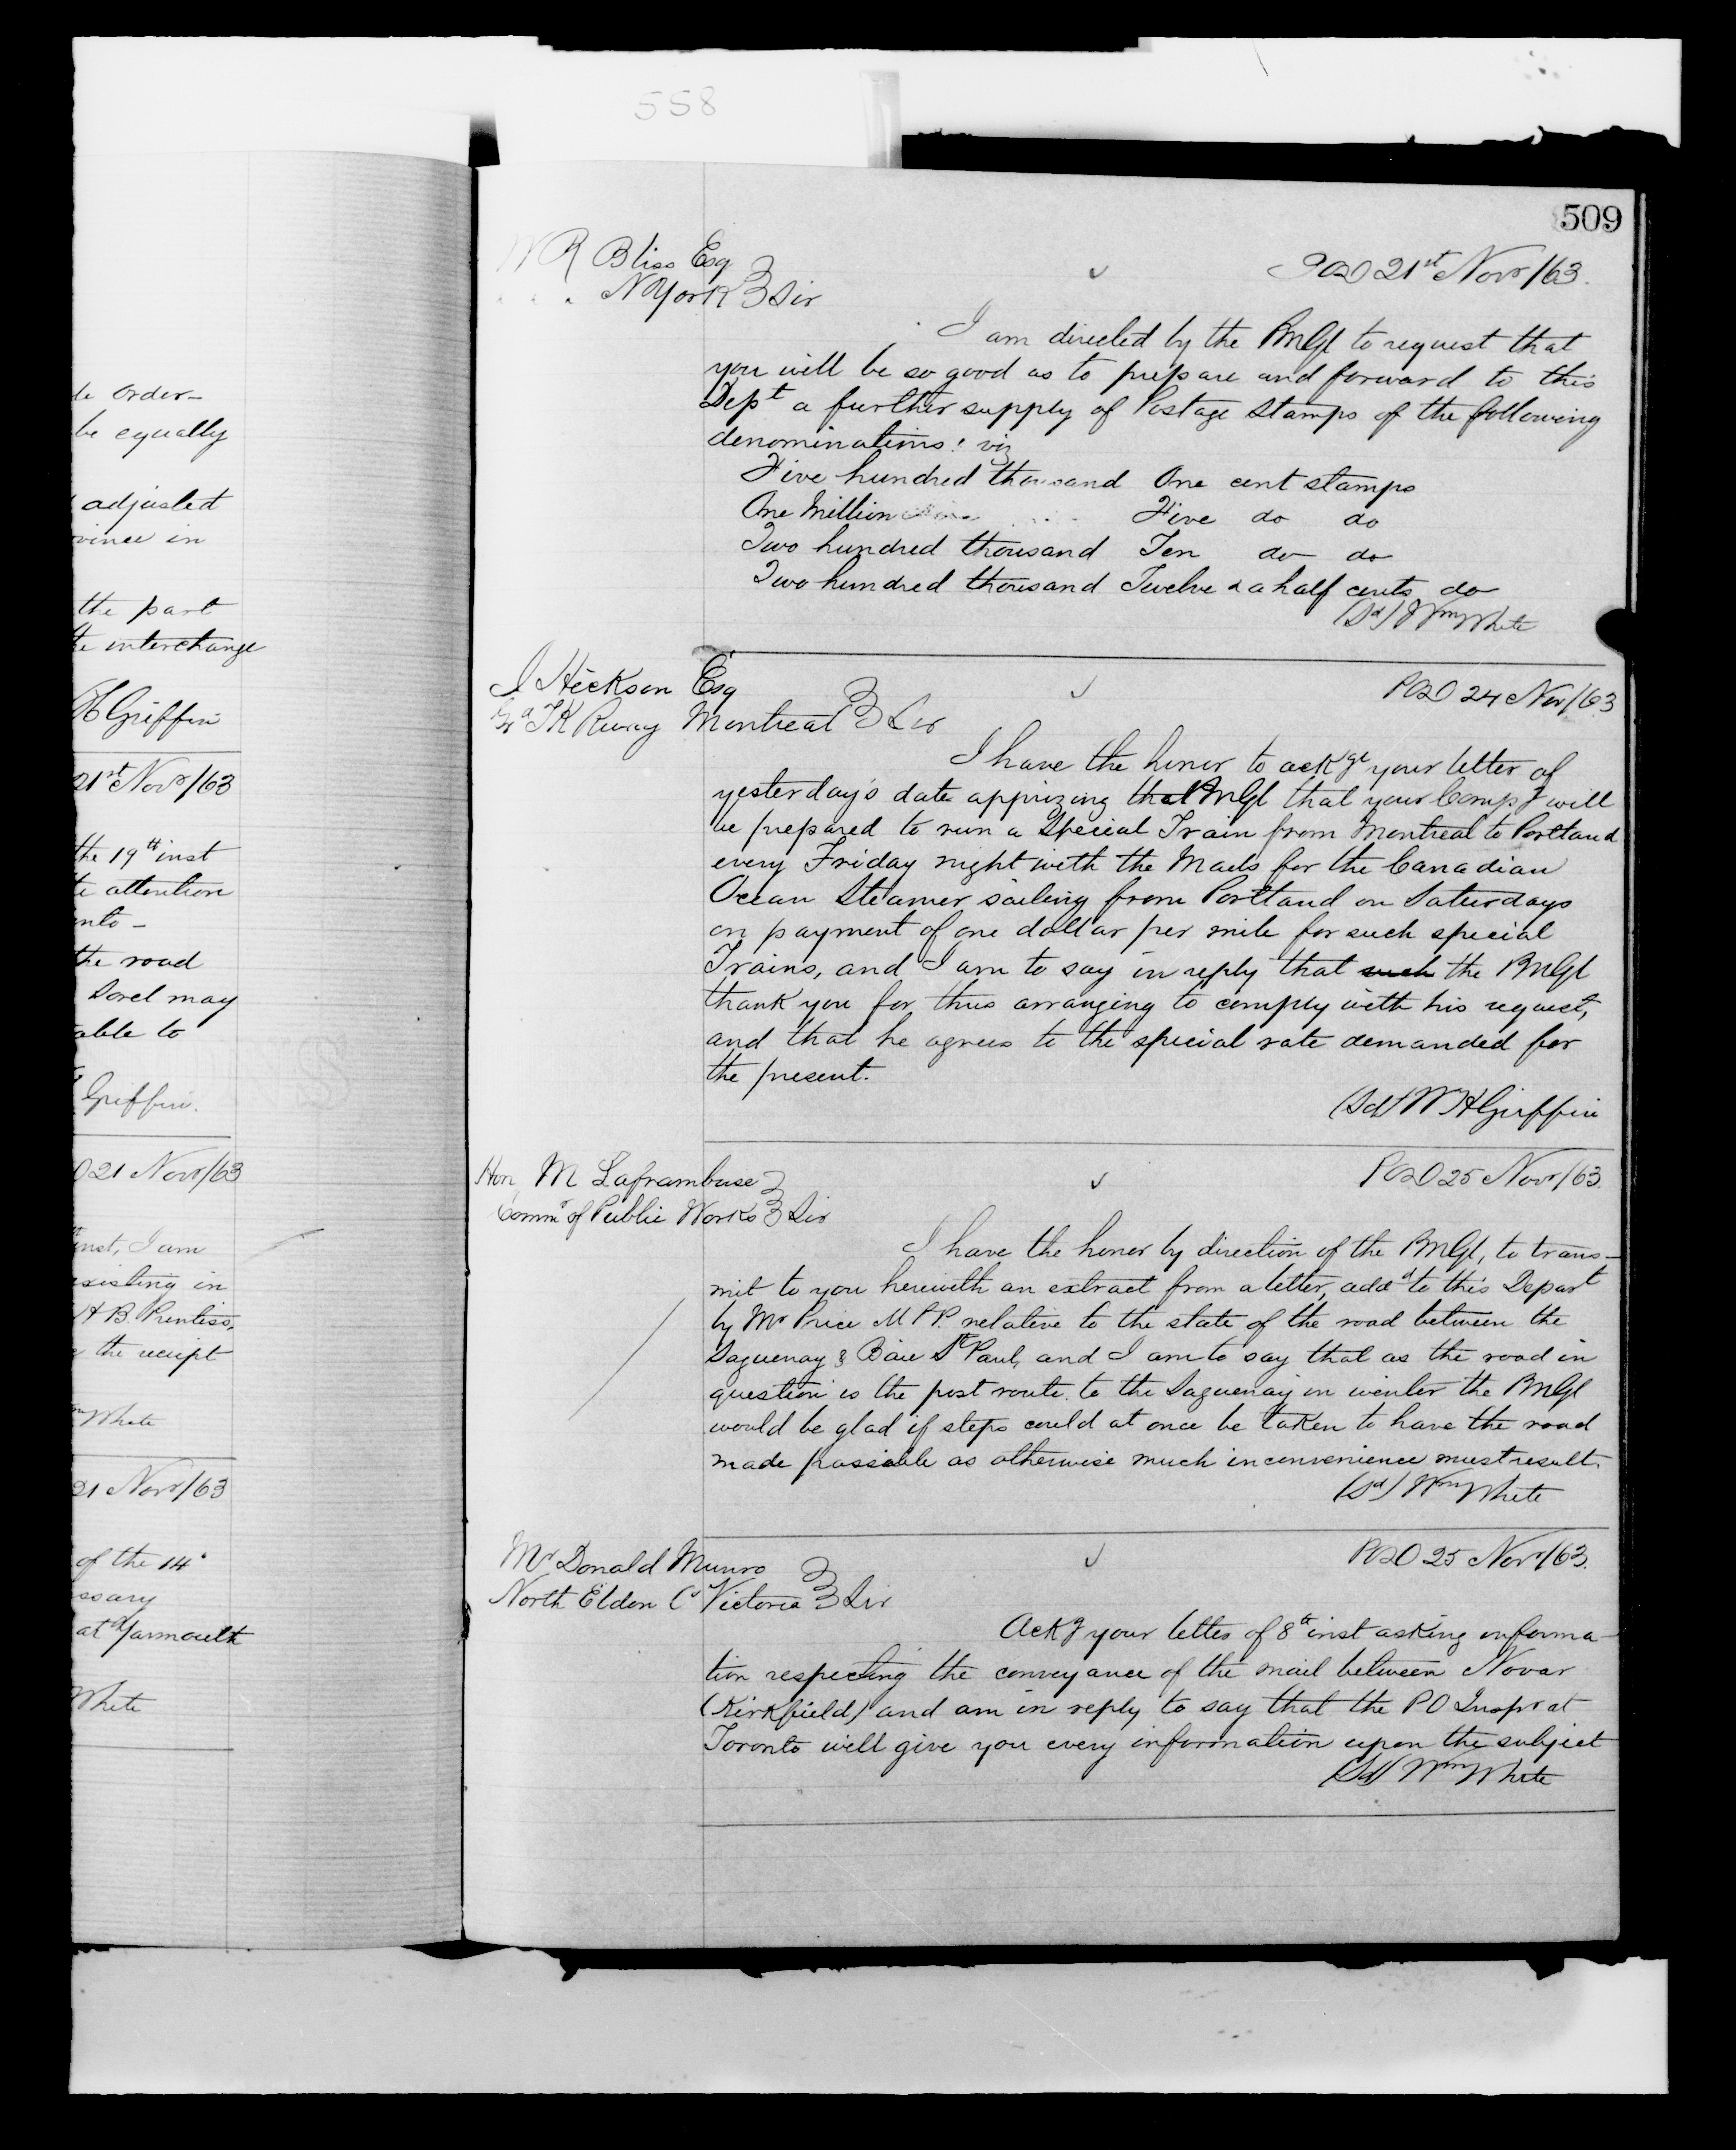 558
de order-
be equally
adjusted
vince in
the part
te interchange
H Griffin
21st Novr/63
the 19th inst
te attention
nto -
the road
Sorel may
able to
Griffin.
O 21 Novr/63
inst, I am
existing in
H B. Prentiss,
the receipt
White
21 Novr/63
of the 14
ssary
at Yarmouth
White
509
W R Bliss Esq
N York Sir
POD 21st Novr/63.
I am directed by the PMGl to request that
you will be so good as to prepare and forward to this
Dept a further supply of Postage Stamps of the following
denominations: viz
Five hundred thousand One cent stamps
One Million Five do do
Two hundred thousand Ten do do
Two hundred thousand Twelve & a half cents do
(Sd) Wm White
J Hickson Esq
Gd TK Rway Montreal Sir
POD 24 Nov/63
I have the honor to ackge your letter of
yesterday's date apprizing that PMGl that your Compy will
be prepared to run a Special Train from Montreal to Portland
every Friday night with the Mails for the Canadian
Ocean Steamer sailing from Portland on Saturdays
on payment of one dollar per mile for such special
Trains, and I am to say in reply that such the PMGl
thank you for thus arranging to comply with his request,
and that he agrees to the special rate demanded for
the present.
(Sd) W H Griffin
Hon M Laframbuse
Commr of Public Works Sir
POD 25 Novr/63.
I have the honor by direction of the PMGl, to trans-
mit to you herewith an extract from a letter, addd to this Depart
by Mr Price M P P. relative to the state of the road between the
Saguenay & Baie St Paul, and I am to say that as the road in
question is the post route to the Saguenay in winter the PMGl
would be glad if steps could at once be taken to have the road
made passable as otherwise much inconvenience must result.
(Sd) Wm White
Mr Donald Munro
North Eldon Co Victoria Sir
POD 25 Novr/63.
Ackg your letter of 8th inst asking informa-
tion respecting the conveyance of the mail between Novar
(Kirkfield) and am in reply to say that the PO Inspr at
Toronto will give you every information upon the subject
(Sd) Wm White